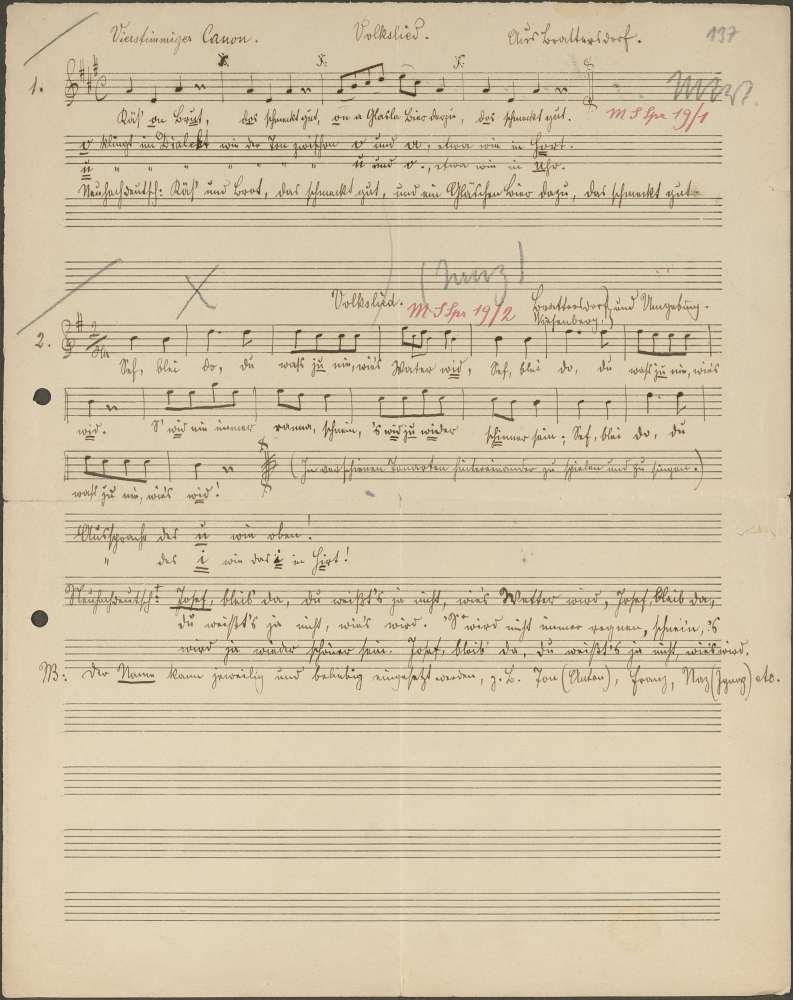 Vierstimmiger Canon. Volkslied. Aus Brattersdorf. 137
1.
Käs' on Brut, dos schmeckt gut, on a Glasla Bier derzu, dos schmeckt gut. M S Spr 19/1
o klingt im Dialekt wie der Ton zwischen o und a, etwa wie in Hort.
u " " " " " " " u und o., etwa wie in Uhr.
Neuhochdeutsch: Käs' und Brot, das schmeckt gut, und ein Gläschen Bier dazu, das schmeckt gut.
Volkslied. M S Spr 19/2 Brattersdorf, und Umgebung.
Wiesenberg,
2.
Sef, blei do, du waßt ju nie, wie's Water wid, Sef, blei do, du waßt ju nie, wie's
wid. S' wid nie immer ranna, schnein, 's wid ju wieder schinner sein; Sef, blei do, du
waßt ju nie, wie's wid!
(In verschienen Tonarten hintereinander zu spielen und zu singen.)
Aussprache des u wie oben!
" des i wie das i in Hirt!
Neuhochdeutsch: Josef, bleib da, du weißt's ja nicht, wie's Wetter wird, Josef, bleib da,
du weißt's ja nicht, wie's wird. 'S wird nicht immer regnen, schnein, 's
wird ja wieder schöner sein. Josef, bleib' da, du weißt's ja nicht, wie's wird.
NB: Der Name kann jeweilig und beliebig eingesetzt werden, z. B. Ton (Anton), Franz, Naz (Ignaz) etc.